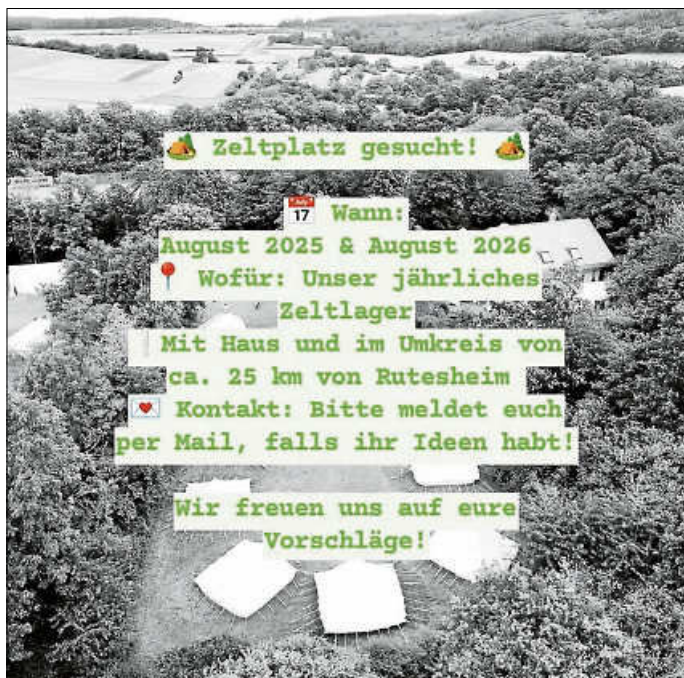 🏕️ Zeltplatz gesucht! 🏕️
📅 Wann:
August 2025 & August 2026
📍 Wofür: Unser jährliches
Zeltlager
❕Mit Haus und im Umkreis von
ca. 25 km von Rutesheim
💌 Kontakt: Bitte meldet euch
per Mail, falls ihr Ideen habt!
Wir freuen uns auf eure
Vorschläge!